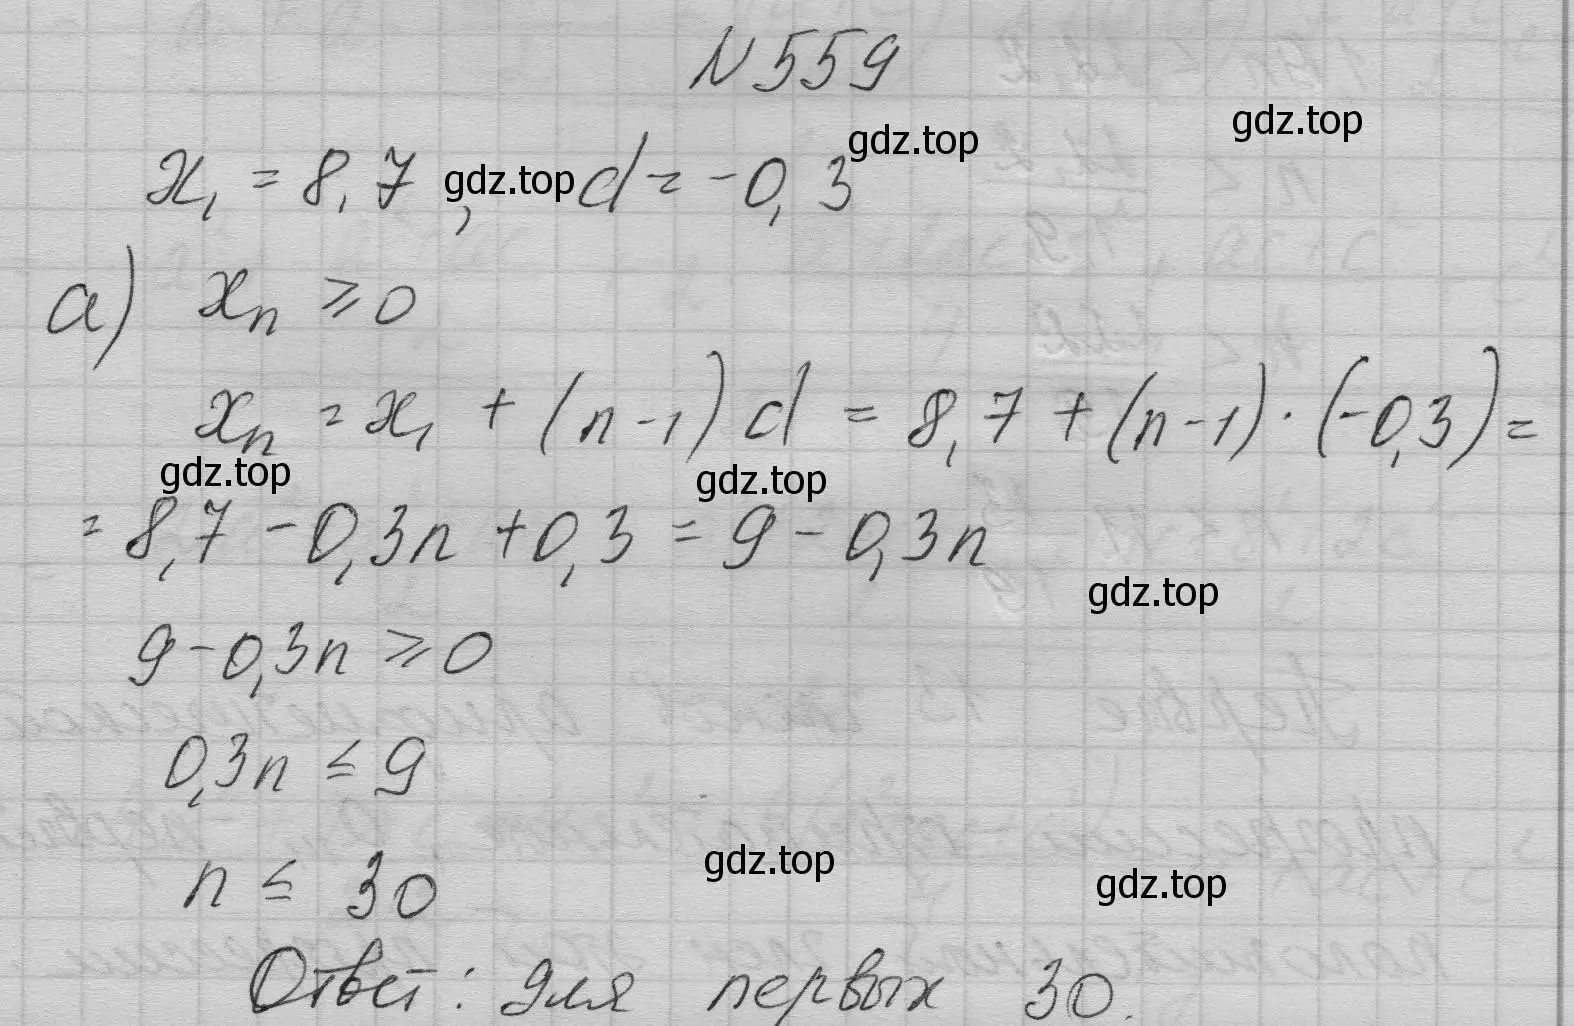 N 559
x₁ = 8,7 , d = -0,3
а) xₙ ≥ 0
xₙ = x₁ + (n-1) d = 8,7 + (n-1) · (-0,3) =
= 8,7 - 0,3n + 0,3 = 9 - 0,3n
9 - 0,3n ≥ 0
0,3n ≤ 9
n ≤ 30
Ответ: для первых 30.
gdz.top
gdz.top
gdz.top
gdz.top
gdz.top
gdz.top
gdz.top
gdz.top